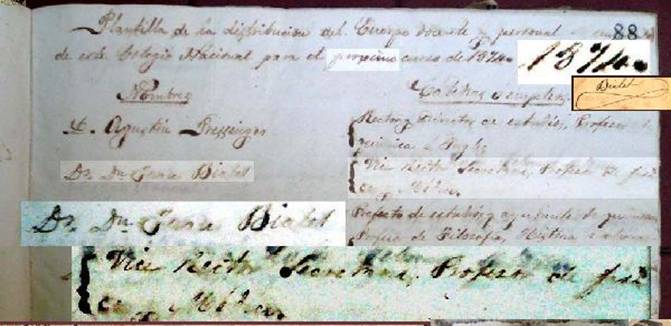 Plantilla de la distribucion del Cuerpo docente y personal
88
de este Colegio Nacional para el procsimo curso de 1874.
1874.
Nombres
Dr. Agustin
Rector y Director de estudios, Profesor de
quimica é Ingles
Dr. Dn. Juan Bialet
Vice Rector Secretario, Profesor de fisi
ca y
Dr. Dn. Juan Bialet
Prefecto de estudios y ayudante de quimica
Profesor de Filosofia, Historia
Vice Rector Secretario, Profesor de fisi
ca y
Bialet